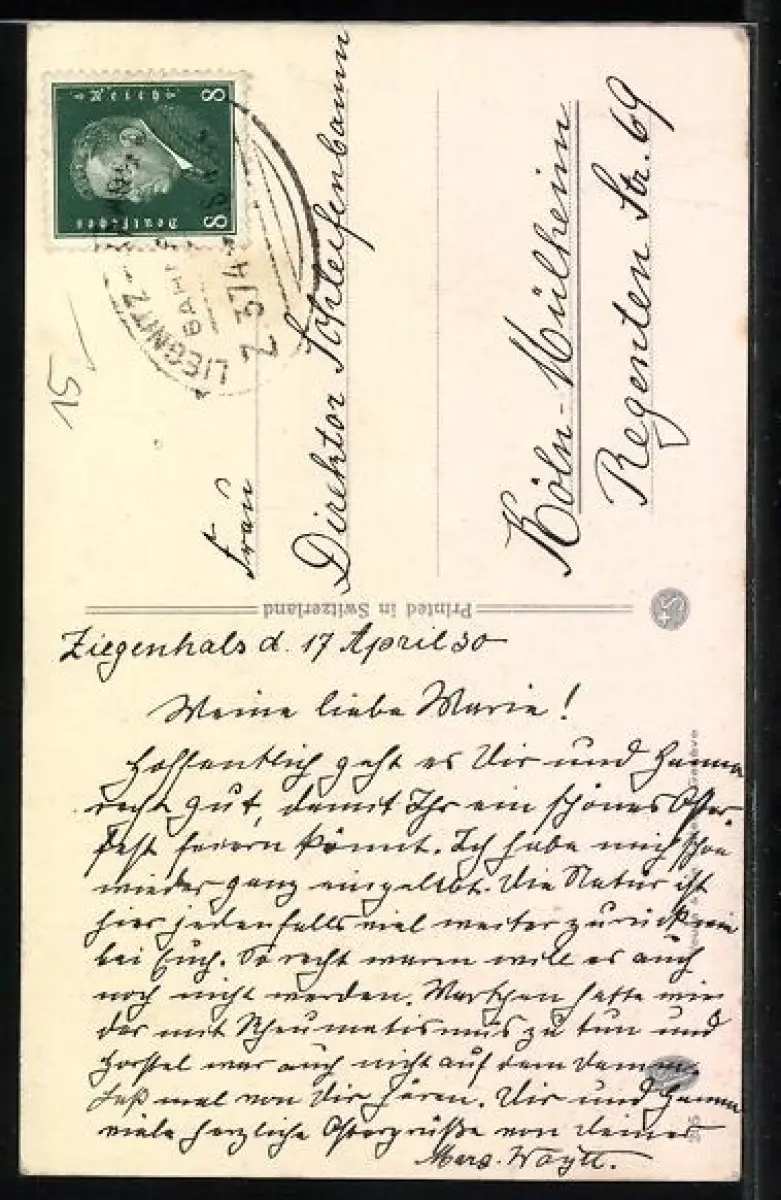 8 8
Deutsches Reich
LIEGNITZ-
BAHNPOST
Z 374
15
Frau
Direktor Schleifenbaum
Köln-Mülheim
Regenten Str. 69
Printed in Switzerland
Ziegenhals d. 17 April 30
Meine liebe Marie!
Hoffentlich geht es Dir und Hanna
recht gut, damit Ihr ein schönes Oster-
fest feiern könnt. Ich habe mich schon
wieder ganz eingelebt. Die Natur ist
hier jedenfalls viel weiter zurück wie
bei Euch. So recht warm will es auch
noch nicht werden. hatte wie
der mit Rheumatismus zu tun und
war auch nicht auf dem Damm.
Laß mal von Dir hören. Dir und Hanna
viele herzliche Ostergrüße von Deiner